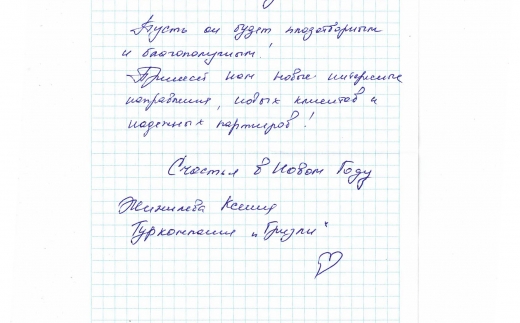 Пусть он будет плодотворным
и благополучным!
Принесет нам новые интересные
направления, новых клиентов и
надежных партнеров!
Счастья в Новом Году
Ксения
Туркомпания „Гризли"